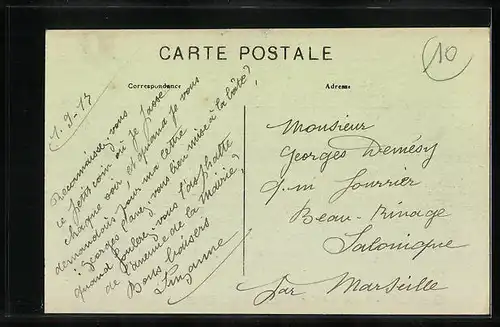 CARTE POSTALE
10
Correspondance
Adresse
1-9-17
Reconnaissez vous
ce petit coin où je passe
chaque soir, et quand je vous
demandais pour ma lettre
"Georges l'avez vous bien mise à la boîte?
quand foulerez vous l'asphalte
de l'avenue de la Mairie?
Bons baisers
Suzanne
Monsieur
Georges Demésy
q.m fourrier
Beau-Rivage
Salonique
par Marseille